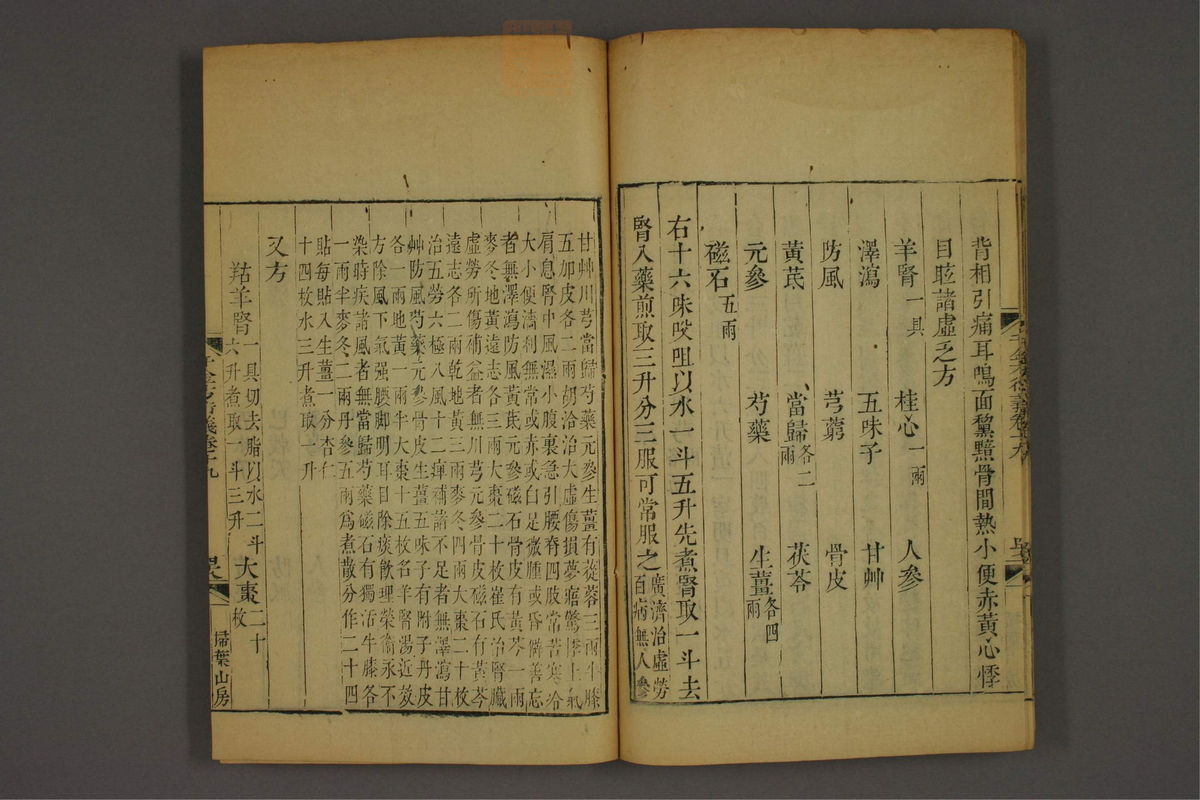 背相引痛耳鳴面黧黯骨間熱小便赤黃心悸
目眩諸虛乏方
羊腎一具 桂心一兩 人參
澤瀉 五味子 甘艸
防風 芎藭 骨皮
黃茋 當歸各二兩 茯苓
元參 芍藥 生薑各四兩
磁石五兩
右十六味㕮咀以水一斗五升先煮腎取一斗去
腎入藥煎取三升分三服可常服之廣濟治虛勞百病無人參
甘艸川芎當歸芍藥元參生薑有蓯蓉三兩牛膝
五加皮各二兩胡洽治大虛傷損夢寤驚悸上氣
肩息腎中風濕小腹裏急引腰脊四肢常苦寒冷
大小便濇利無常或赤或白足微腫或昏僻善忘
者無澤瀉防風黃茋元參磁石骨皮有黃芩一兩
麥冬地黃遠志各三兩大棗二十枚崔氏治腎臟
虛勞所傷補益者無川芎元參骨皮磁石有黃芩
遠志各二兩乾地黃三兩麥冬四兩大棗二十枚
治五勞六極八風十二痺補諸不足者無澤瀉甘
艸防風芍藥元參骨皮生薑五味子有附子丹皮
各一兩地黃一兩半大棗十五枚名羊腎湯近效
方除風下氣强腰脚明耳目除痰飲理榮衞永不
染時疾諸風者無當歸芍藥磁石有獨活牛膝各
一兩半麥冬二兩丹參五兩爲煮散分作二十四
貼每貼入生薑一分杏仁
十四枚水三升煮取一升
又方
羖羊腎一具切去脂以水二斗六升煮取一斗三升 大棗二十枚
掃葉山房